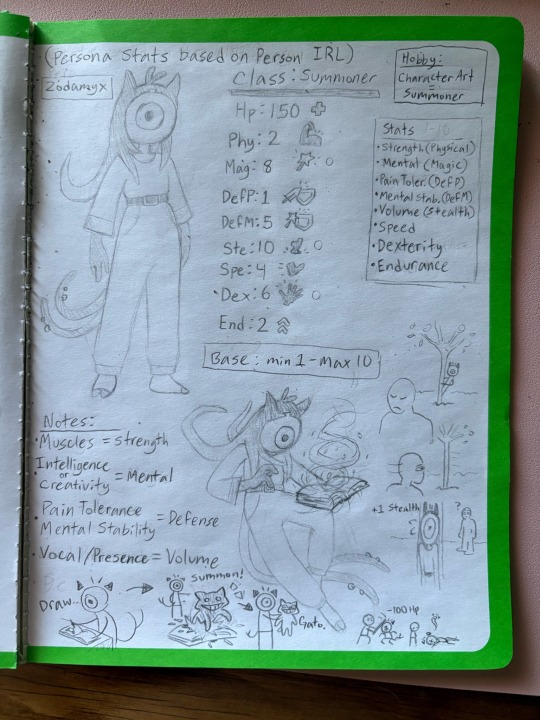 (Persona Stats based on Person IRL)
Zodamyx
Class: Summoner
Hp: 150
Phy: 2
Mag: 8
DefP: 1
DefM: 5
Ste: 10
Spe: 4
• Dex: 6
End: 2
Base: min 1 - max 10
Hobby:
Character Art
=
Summoner
Stats 1-10
• Strength (Physical)
• Mental (Magic)
• Pain Toler. (DefP)
• Mental Stab. (DefM)
• Volume (Stealth)
• Speed
• Dexterity
• Endurance
Notes:
• Muscles = strength
• Intelligence
or
Creativity = Mental
• Pain Tolerance
Mental Stability = Defense
• Vocal/Presence = Volume
+1 Stealth
?
Draw...
Summon!
Gato.
-100 Hp